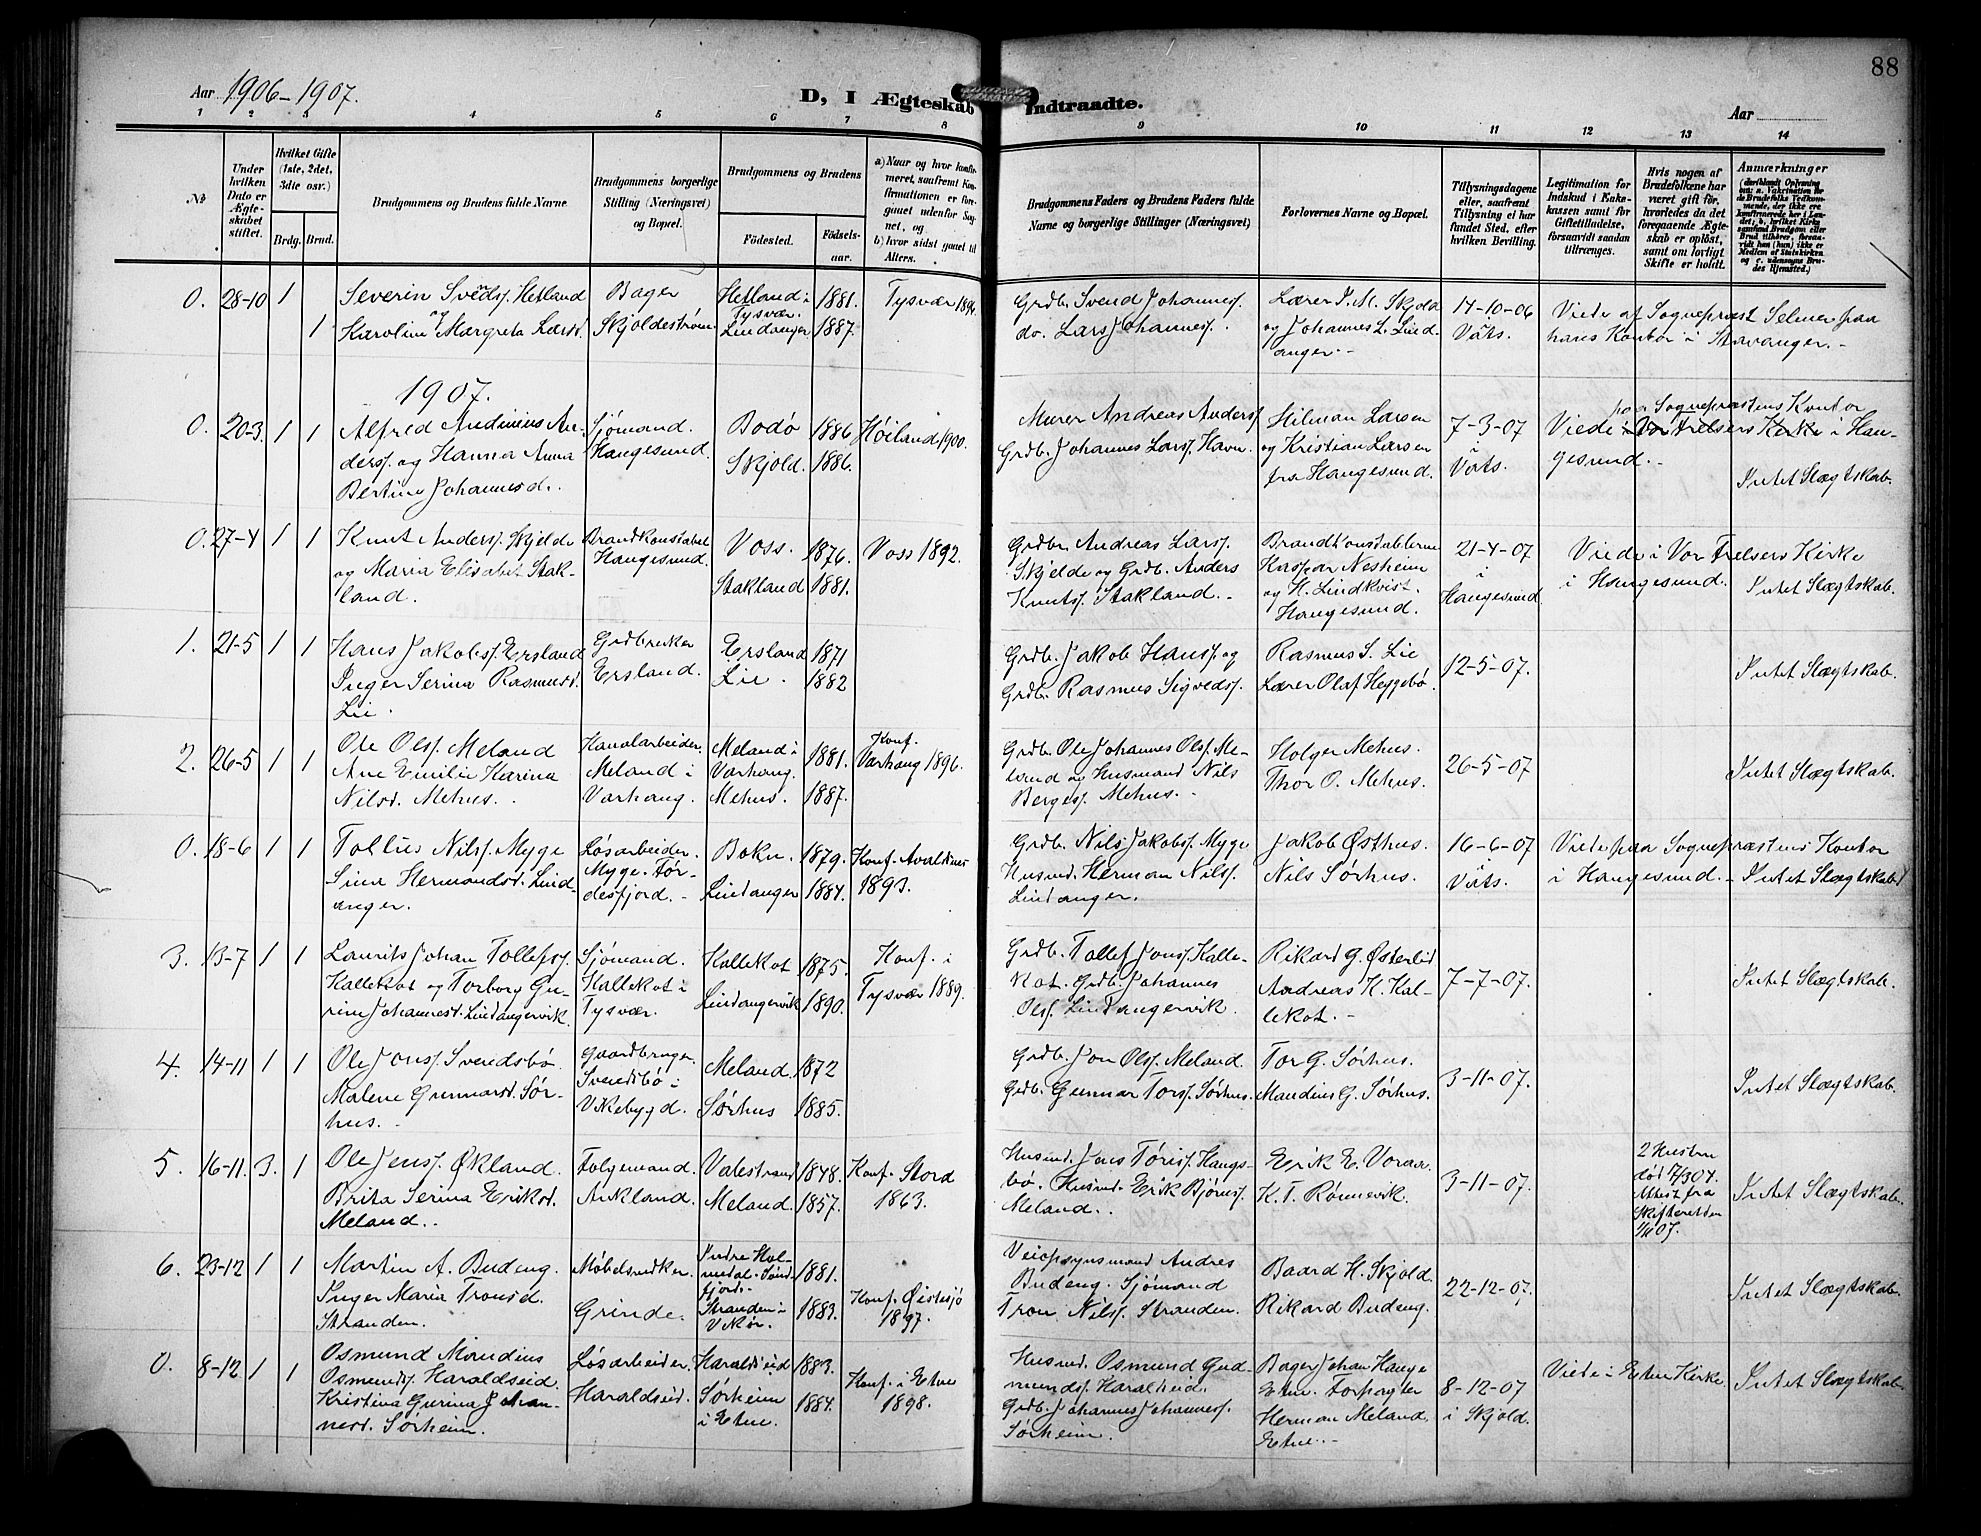 88
Aar 1906-1907.
D, I Ægteskab Indtraadte.
Aar
1 2 3 4 5 6 7 8 9 10 11 12 13 14
No
Under hvilken Dato er Ægteskabet stiftet.
Hvilket Gifte (1ste, 2det, 3die osv.)
Brdg. Brud.
Brudgommens og Brudens fulde Navne.
Brudgommens borgerlige Stilling (Næringsvei) og Bopæl.
Brudgommens og Brudens
Fødested. Fødselsaar.
a) Naar og hvor konfirmeret, saafremt Konfirmationen er foregaaet udenfor Sognet, og
b) hvor sidst gaaet til Alters.
Brudgommens Faders og Brudens Faders fulde Navne og borgerlige Stillinger (Næringsvei)
Forlovernes Navne og Bopæl.
Tillysningsdagene eller, saafremt Tillysning ei har fundet Sted, efter hvilken Bevilling.
Legitimation for Indskud i Enkekassen samt for Giftetilladelse, forsaavidt saadan tiltrænges.
Hvis nogen af Brudefolkene har været gift før, hvorledes da det foregaaende Ægteskab er opløst, samt om lovligt Skifte er holdt.
Anmærkninger
0. 28-10 1 Severin Svends. Hetland Bager Hetland i Tysvær. 1881. Tysvær 189
1 og Karoline Margreta Larsd. Skjoldestrøm Lindanger 1887.
Grdb. Svend Johannes. Lærer J. M. Skjold 14-10-06 Viede af Sognepræst Selmer paa
do. Lars Johannes. og Johannes L. Lindanger.- Vats. hans Kontor i Stavanger.-
1907.
0. 20-3. 1 1 Alfred Andinius Anders. og Hanna Anna Bertine Johannesd. Sjømand. Haugesund. Bodø 1886. Skjold. 1886. Høiland 1900.
Murer Andreas Anders. Hilman Larsen 7-3-07 paa Sognepræstens Kontor
Grdb. Johannes Lars. Havn. og Kristian Larsen fra Haugesund. Vats. Viede i Vor Frelsers Kirke i Haugesund.- Intet Slægtskab.
0. 27-4 1 1 Knut Anders. Skjelde og Maria Elisabet Stakland. Brandkonstabel Haugesund. Voss. 1876. Stakland 1881. Voss 1892.
Grdbr. Andreas Lars. Skjelde og Grdb. Anders Knuts. Stakland.- Brandkonstablerne Kaspar Nesheim og H. Lindkvist. Haugesund. 21-4-07 i Haugesund. Viede i Vor Frelsers Kirke i Haugesund. Intet Slægtskab.
1. 21-5 1 1 Hans Jakobs. Ersland Inger Serina Rasmusd. Lie. Grdbruker Ersland. Ersland 1871 Lie. 1882
Grdb. Jakob Hans. og Grdb. Rasmus Sigveds. Rasmus S. Lie Lærer Olaf Heggebø. 12-5-07. Intet Slægtskab.
2. 26-5 1 1 Ole Ols. Meland Ane Emilie Karina Nilsd. Mehus. Kanalarbeider. Meland i Varhaug. Meland i Varhaug. Mehus. 1881. 1887. Konf. Varhaug 1896.
Grdb. Ole Johannes Ols. Meland og Husmand Nils Berges. Mehus.- Holger Mehus. Thor O. Mehus. 26-5-07 Intet Slægtskab.
0. 18-6 1 1 Tollius Nils. Myge Sina Hermandsd. Lindanger. Løsarbeider. Myge. Førdesfjord.- Bokn. 1879. Lindanger 1884. Konf. Avaldsnes 1893.
Grdb. Nils Jakobs. Myge Husmd. Herman Nils. Lindanger. Jakob Østhus. Nils Sørhus. 16-6-07 Vats. Viede paa Sognepræstens Kontor i Haugesund.- Intet Slægtskab
3. 13-7 1 1 Laurits Johan Tollefs. Kallekot og Torborg Gurine Johannesd. Lindangervik. Sjømand. Kallekot i Tysvær. Kallekot 1875. Lindangervik 1890. Konf. i Tysvær 1889.
Grdb. Tollef Jons. Kallekot. Grdb. Johannes Ols. Lindangervik. Rikard G. Østerlid Andreas K. Kallekot.- 7-7-07. Intet Slægtskab.
4. 14-11 1 1 Ole Jons. Svendsbø. Malene Gunnarsd. Sørhus.- Gaardbruger Svendsbø i Vikebygd. Meland. 1872 Sørhus 1885.
Grdb. Jon Ols. Meland. Grdb. Gunnar Tors. Sørhus. Tor G. Sørhus. Mandius G. Sørhus. 3-11-07. Intet Slægtskab.
5. 16-11. 3. 1 Ole Jens. Økland. Brita Serina Eriksd. Meland. Følgemand. Aukland. Valestrand 1848. Meland. 1857. Konf. Stord 1863.
Husmd. Jens Tøris. Haugsbø. Husmd. Erik Bjørns. Meland. Erik E. Voraa. K. T. Rønnevik. 3-11-07. 2 Hustru død 7/3 07. Attest fra Skifteretten 1/11 07. Intet Slægtskab.
6. 23-12 1 1 Martin A. Budeng. Inger Maria Tronsd. Stranden. Møbelsnedker. Grinde. Indre Holmedal. Søndfjord. 1881. Stranden i Vikør. 1883. Konf. Østesjø 1897.
Veiopsynsmand Andres Budeng. Sjømand Tron Nils. Stranden. Baard H. Skjold. Rikard Budeng. 22-12-07. Intet Slægtskab.
0. 8-12 1 1 Osmund Mandius Osmunds. Haraldseid. Kristina Gurina Johannesd. Sørheim. Løsarbeider. Haraldseid. Haraldseid 1883. Sørheim i Etne. 1884. Konf. i Etne 1898.
Husmd. Osmund Gudmunds. Haraldseid. Grdb. Johannes Johannes. Sørheim. Bager Johan Hauge Etne. Forpagter Herman Meland. Etne.- 8-12-07 i Skjold. Viede i Etne Kirke. Intet Slægtskab.